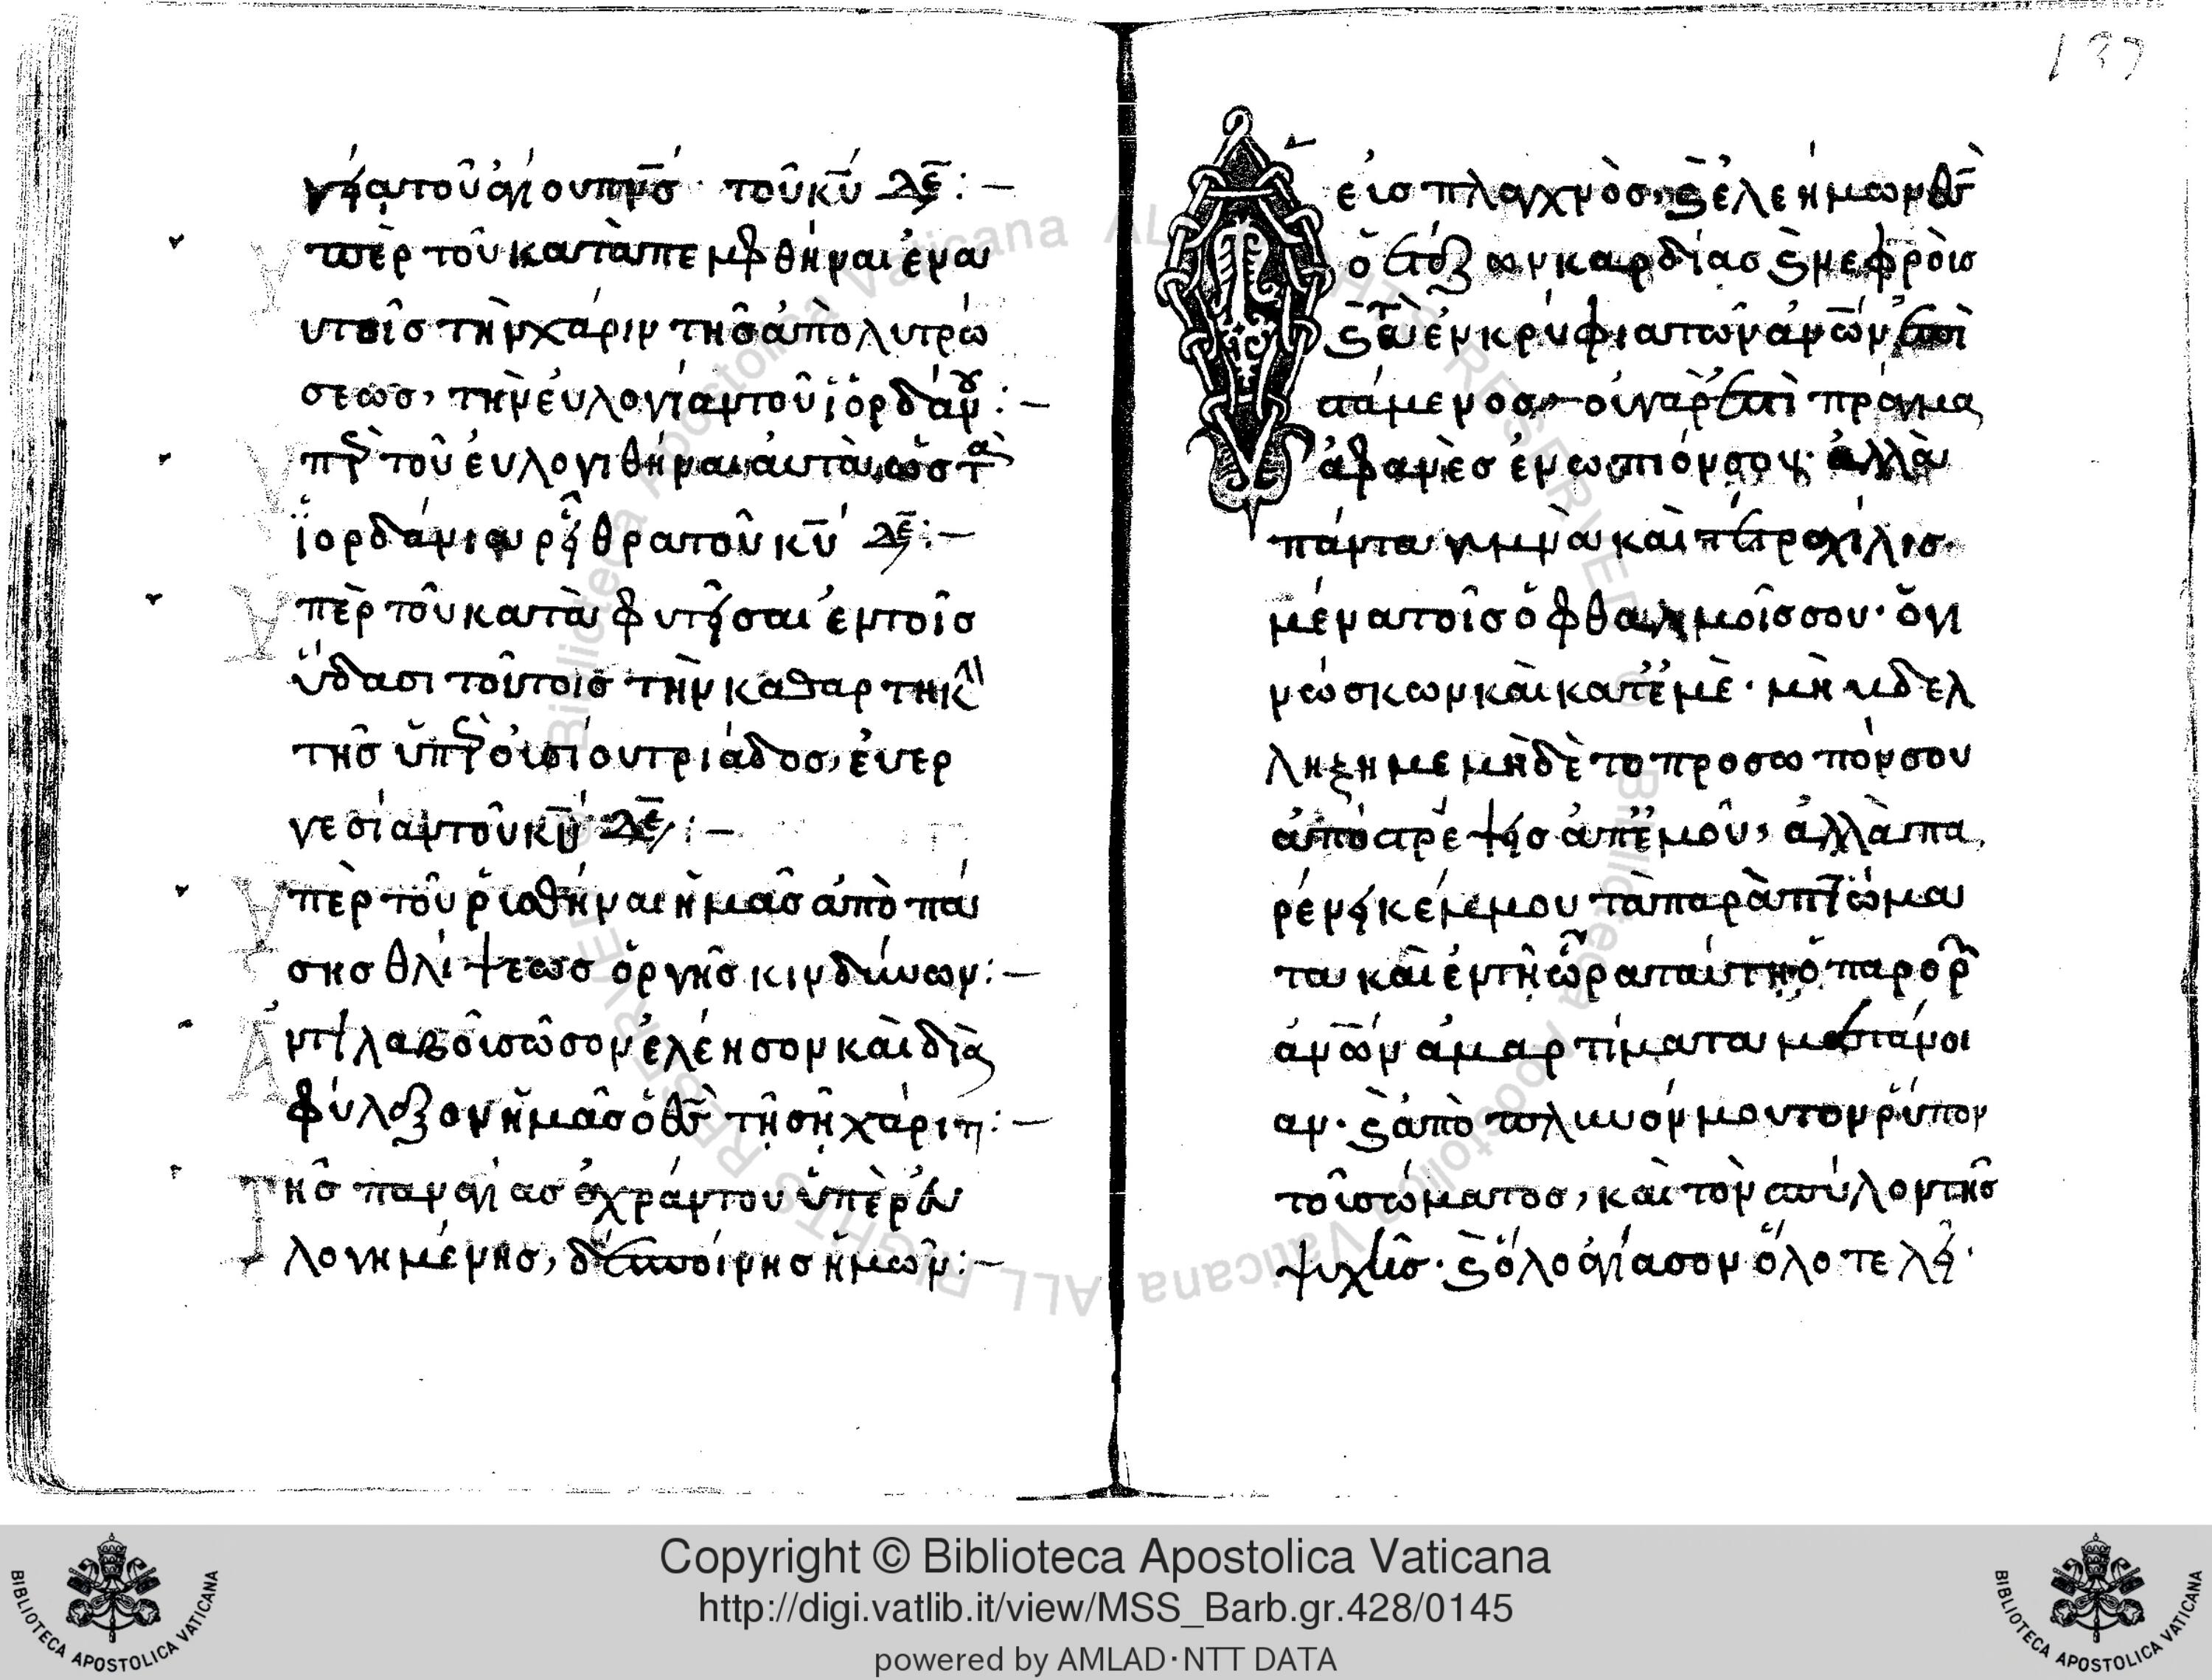 γεία τοῦ ἁγίου πνς· τοῦ κυ δεη:—
Ὑπὲρ τοῦ καταπεμφθήναι ἐν αυ
υτοῖς τὴν χάριν τῆς ἀπολυτρώ
σεως, τὴν ἐυλογίαν τοῦ ϊορδάν:—
Ὑπὲρ τοῦ ἐυλογιθήναι αυτὰ ὡς τὰ
ϊορδάνια ρεῖθρα τοῦ κυ δεη:—
Ὑπὲρ τοῦ καταφυτῆσαι ἐν τοῖς
ὕδασι τούτοις τὴν καθαρτηκ
τῆς ὑπερουσίου τριάδος, ἐνερ
γεσίαν τοῦ κυ δεη:—
Ὑπὲρ τοῦ ῥισθήναι ἡμᾶς ἀπὸ πά
σης θλίψεως ὀργῆς κινδύνων:—
Ἀντιλαβοῦ σῶσον ἐλέησον καὶ διὰ
φύλαξον ἡμᾶς ὁ θς τῆ σῆ χάριτι:—
Τῆς παναγίας ἀχράντου ὑπὲρ ἐυ
λογημένης, δεσποίνης ἡμῶν:—
137
εύσπλαγχνος, κ ἐλεήμων θς
ὁ ἐτάζων καρδίας κ νεφροὺς
κ τὰ ἐν κρύφια τῶν ἀνων ἐπι
στάμενος οὐ γάρ ἐστι πράγμα
ἀφανὲς ἐνωπιόν σου· ἀλλὰ
πάντα γυμνὰ καὶ τετραχιλισ
μένα τοῖς ὀφθαλμοῖς σου· ὁ γι
νώσκων καὶ κατ ἐμὲ· μὴ υδελ
ληξη με μηδὲ το προσωπόν σου
ἀποστρέψης ἀπ ἐμοῦ, ἀλλὰ πα
ρένεγκέ μου τὰ παραπτώμα
τα καὶ ἐν τῆ ὥρα ταύτη ὁ παρορ
ἀνων ἁμαρτίματα μετάνοι
αν· κ ἀπὸ πλυνόν μου τον ῥύπον
τοῦ σώματος, καὶ τὸν σπύλον τῆς
ψυχῆς· κ ὅλον ἁγίασον ὁλοτελῆ·
Copyright © Biblioteca Apostolica Vaticana
http://digi.vatlib.it/view/MSS_Barb.gr.428/0145
powered by AMLAD·NTT DATA
BIBLIOTECA APOSTOLICA VATICANA
BIBLIOTECA APOSTOLICA VATICANA